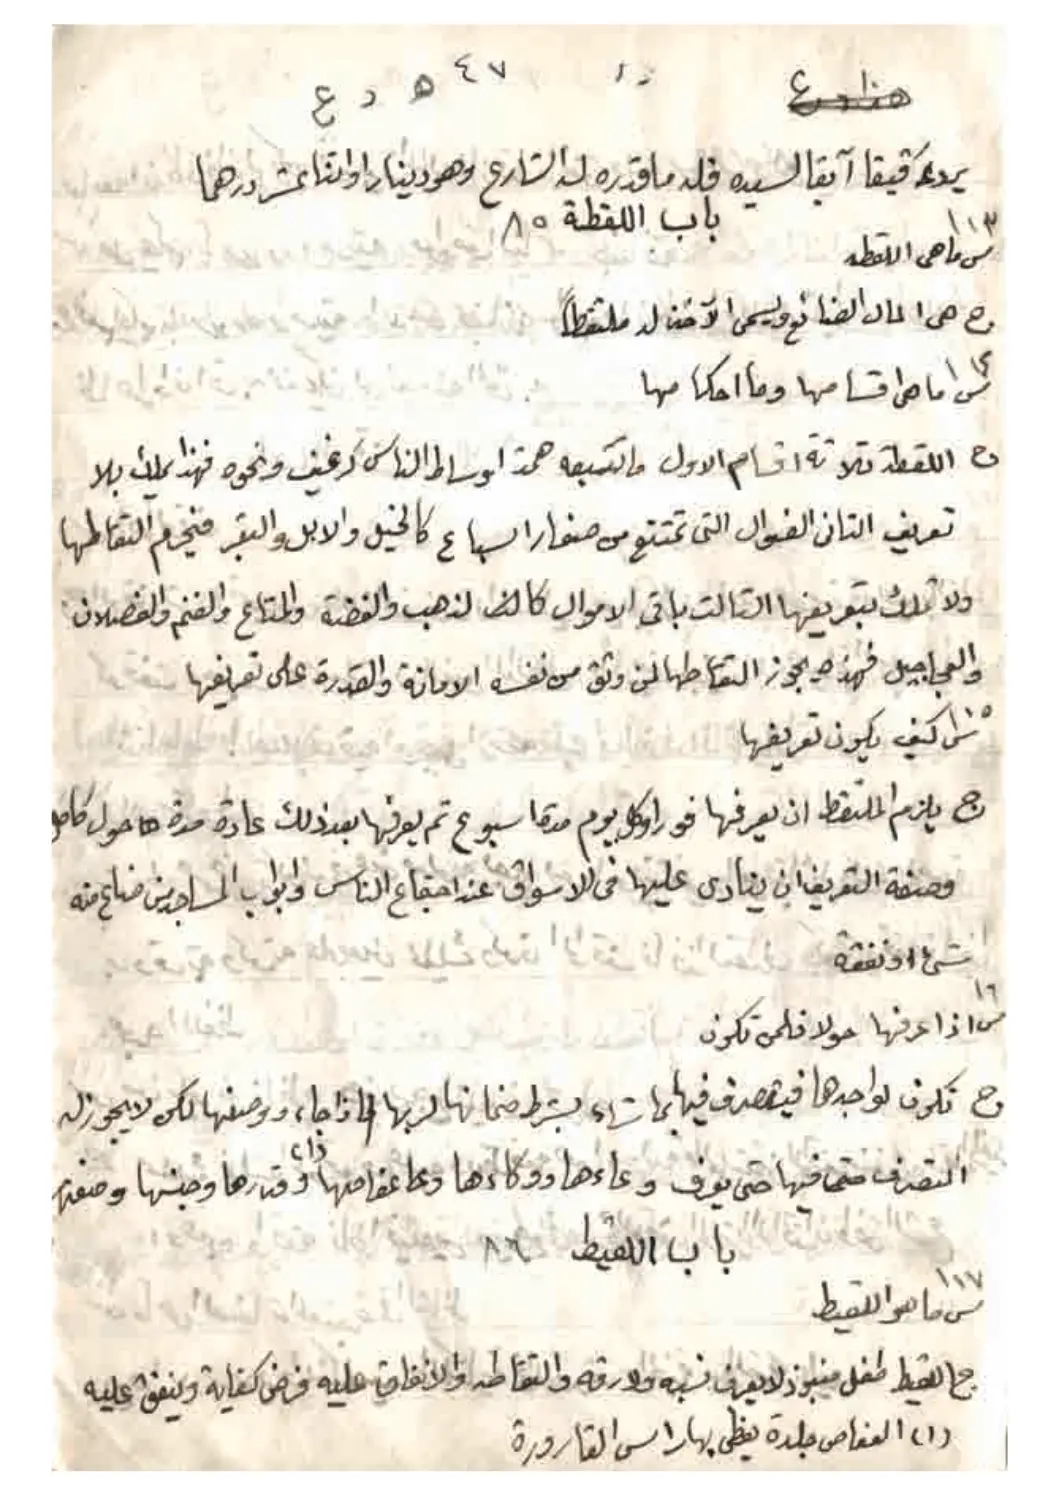 ٤٧
ه د ع
يرد رقيقا آبقا لسيده فله ما قدره له الشارع وهو دينار او اثنا عشر درهما
باب اللقطة ٨٥
١١٣
س ما هي اللقطه
ج هي المال الضائع ويسمى الآخذ له ملتقطاً
س ما هي اقسامها وما احكامها
ج اللقطة ثلاثة اقسام الاول مالا تتبعه همة اوساط الناس كرغيف ونحوه فهذا يملك بلا
تعريف الثاني الضوال التي تمتنع من صغار السباع كالخيل والابل والبقر فيحرم التقاطها
ولا تملك بتعريفها الثالث باقي الاموال كالذهب والفضة والمتاع والغنم والفصلان
والعجاجيل فهذه يجوز التقاطها لمن وثق من نفسه الامانة والقدرة على تعريفها
س كيف يكون تعريفها
ج يلزم الملتقط ان يعرفها فورا وكل يوم مدة اسبوع ثم يعرفها بعد ذلك عادة مدة حول كامل
وصفة التعريف ان ينادى عليها في الاسواق عند اجتماع الناس وابواب المساجد من ضاع منه
شيء او نفقة
س اذا عرفها حولا فلمن تكون
ج تكون لواجدها فيتصرف فيها بما شاء بشرط ضمانها لربها اذا جاء ووصفها لكن لا يجوز له
التصرف فيها حتى يعرف وعاءها ووكاءها وعفاصها (١) وقدرها وجنسها وصفتها
باب اللقيط ٨٦
١١٧
س ما هو اللقيط
ج اللقيط طفل منبوذ لا يعرف نسبه ولا رقه والتقاطه والانفاق عليه فرض كفاية وينفق عليه
(١) العفاص جلدة يغطى بها راس القارورة